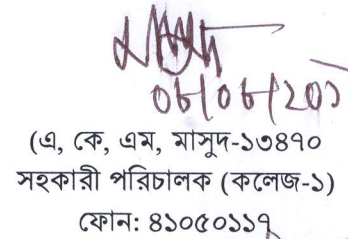 ০৮/০৮/২০১
(এ, কে, এম, মাসুদ-১৩৪৭০
সহকারী পরিচালক (কলেজ-১)
ফোন: ৪১০৫০১১৭